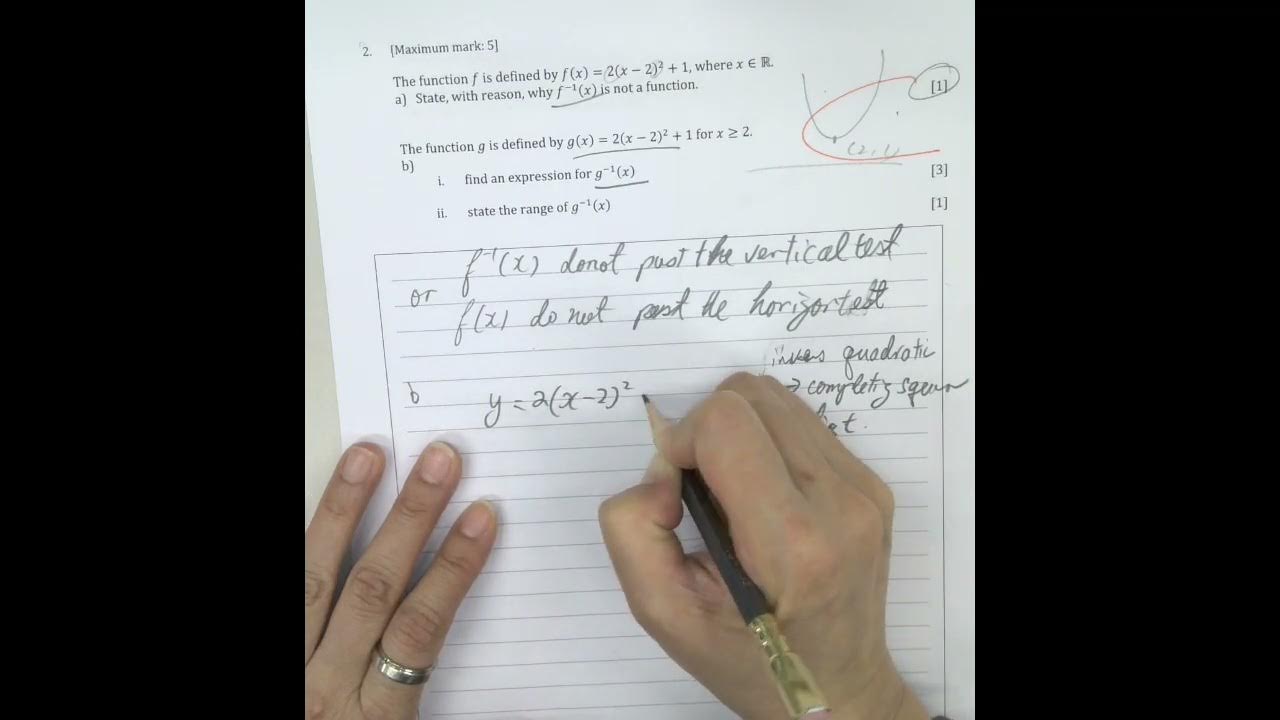 2. [Maximum mark: 5]
The function f is defined by f(x) = 2(x − 2)² + 1, where x ∈ ℝ.
a) State, with reason, why f⁻¹(x) is not a function. [1]
(2, 1)
The function g is defined by g(x) = 2(x − 2)² + 1 for x ≥ 2.
b)
i. find an expression for g⁻¹(x) [3]
ii. state the range of g⁻¹(x) [1]
f⁻¹(x) donot past the vertical test
or
f(x) do not past the
inves quadratic
→ completig
b y = 2(x−2)²